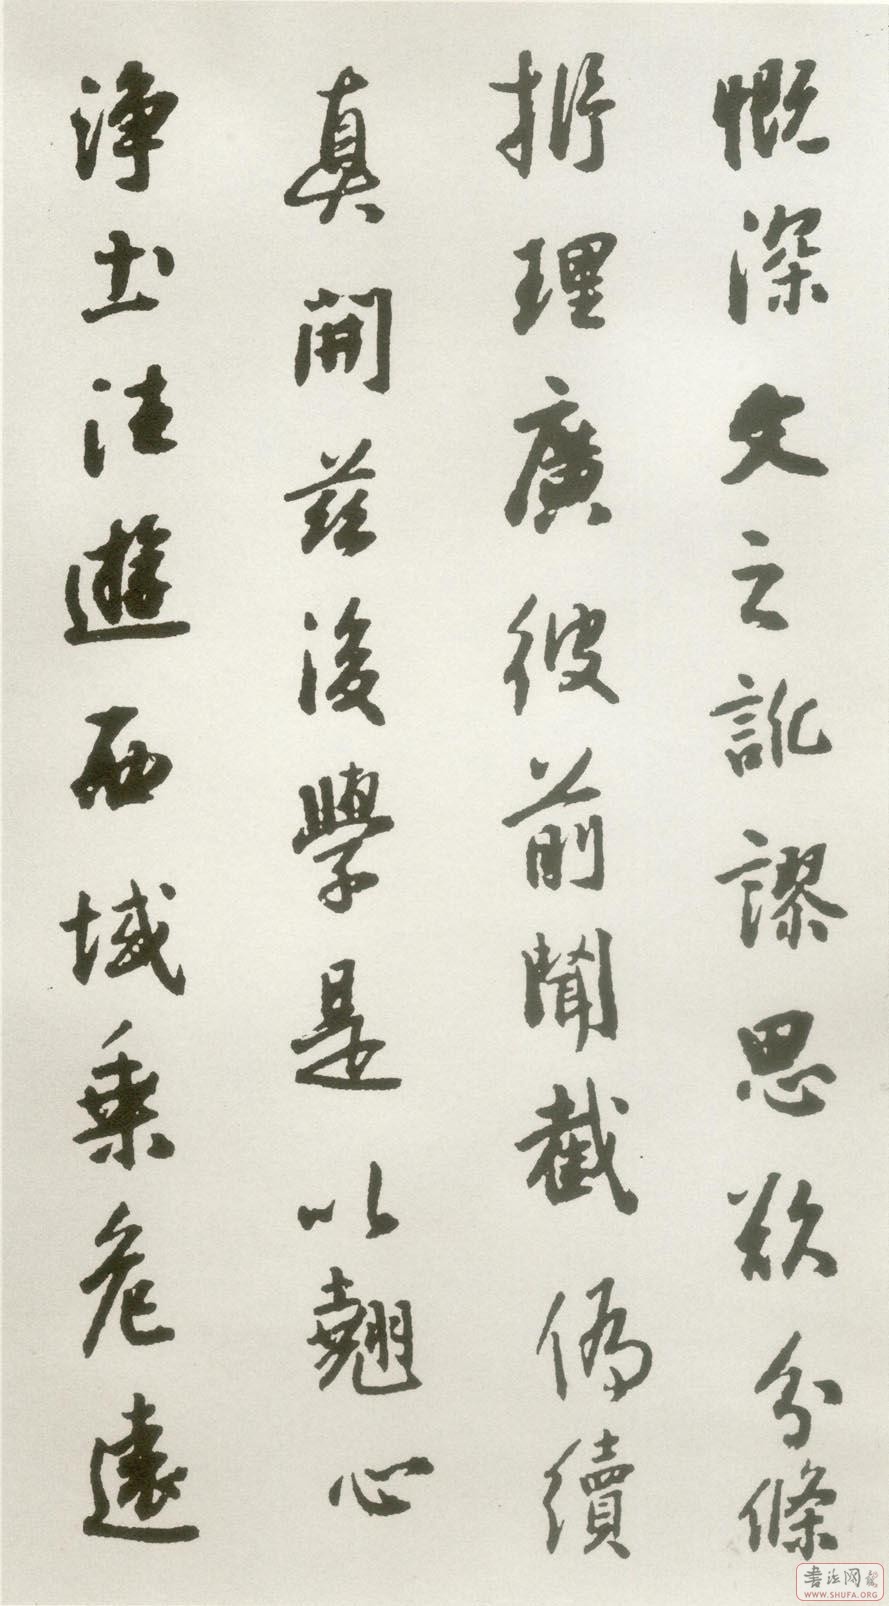 慨深文之訛謬思欲分條
析理廣彼前聞截偽續
真開茲後學是以翹心
淨土法遊西域乘危遠
書法网
WWW.SHUFA.ORG